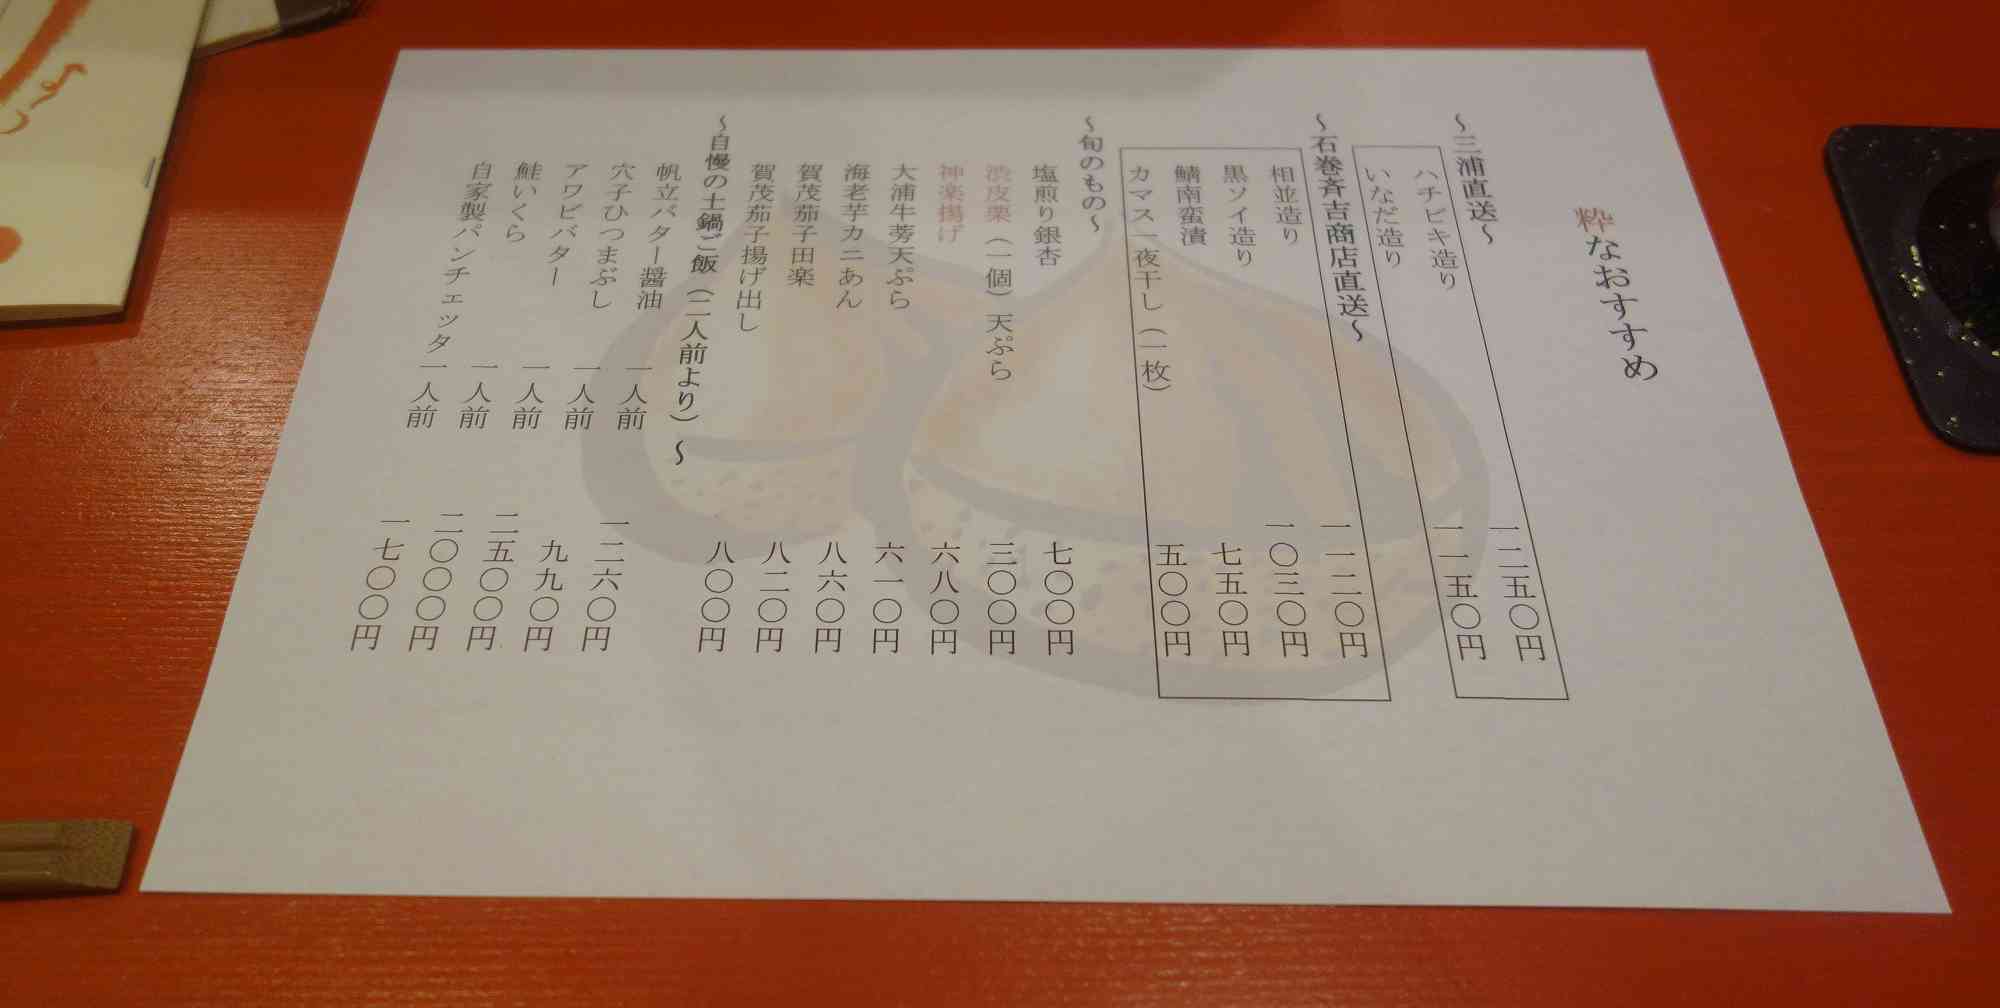 粋なおすすめ
～三浦直送～
ハチビキ造り 一二五〇円
いなだ造り 一一五〇円
～石巻斉吉商店直送～
相並造り 一一二〇円
黒ソイ造り 一〇三〇円
鯖南蛮漬 七五〇円
カマス一夜干し（一枚） 五〇〇円
～旬のもの～
塩煎り銀杏 七〇〇円
渋皮栗（一個）天ぷら 三〇〇円
神楽揚げ 六八〇円
大浦牛蒡天ぷら 六一〇円
海老芋カニあん 八六〇円
賀茂茄子田楽 八二〇円
賀茂茄子揚げ出し 八〇〇円
～自慢の土鍋ご飯（二人前より）～
帆立バター醤油 一人前 一二六〇円
穴子ひつまぶし 一人前 九九〇円
アワビバター 一人前 二五〇〇円
鮭いくら 一人前 二〇〇〇円
自家製パンチェッタ 一人前 一七〇〇円